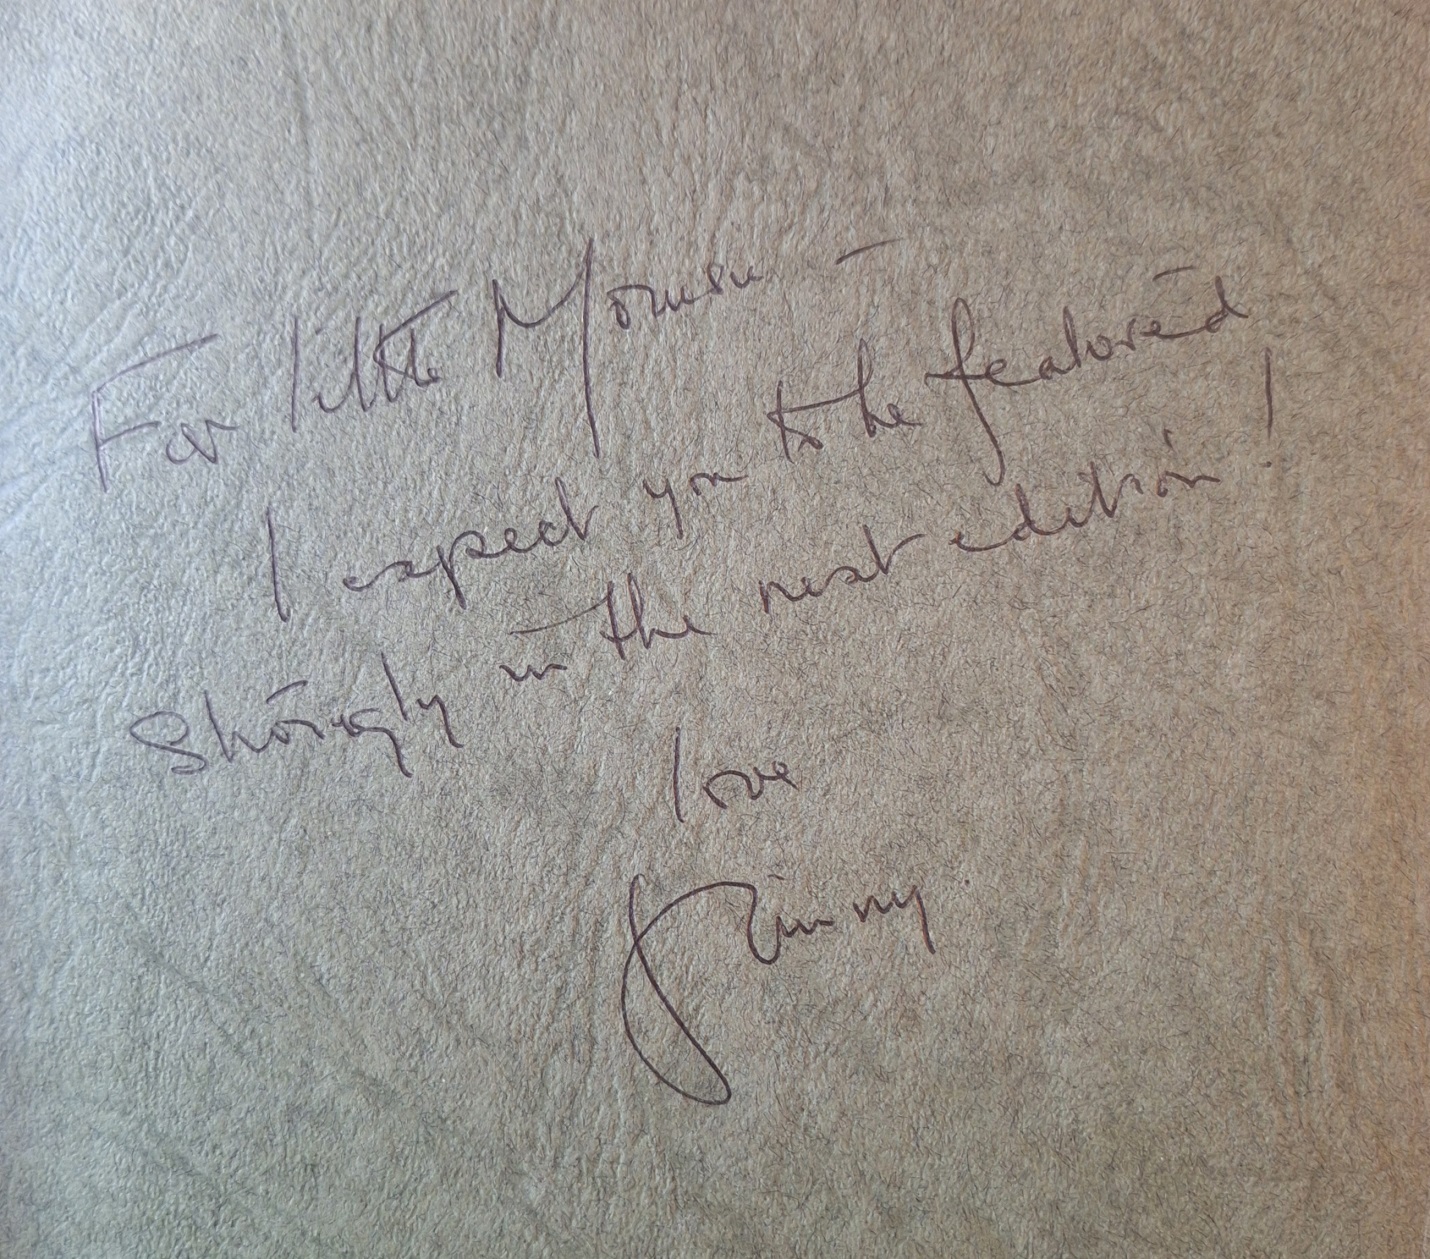 For little Mouse —
I expect you to be featured
strongly in the next edition!
love
Jimmy